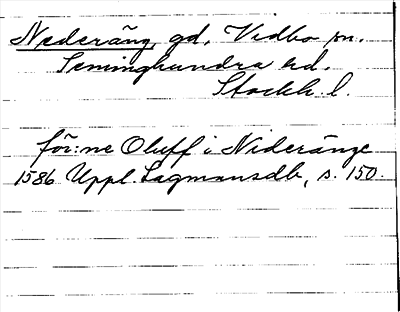 Nederäng, gd, Vidbo sn.
Seminghundra hd.
Stockh. l.
för:ne Oluff i Nideränge
1586 Uppl. Lagmansdb, s. 150.